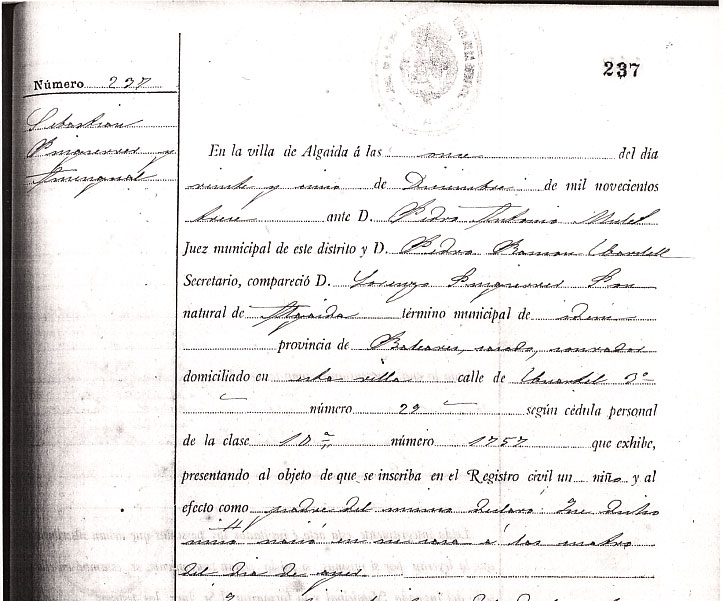 237
Número 237
Sebastian
y
En la villa de Algaida á las once del día
veinte y cinco de Diciembre de mil novecientos
trece ante D. Pedro Antonio Mulet
Juez municipal de este distrito y D. Pedro Ramon
Secretario, compareció D. Lorenzo
natural de Algaida término municipal de idem
provincia de Baleares, casado,
domiciliado en esta villa calle de Cuartel 3º
número 29 según cédula personal
de la clase 10ª número 1757 que exhibe,
presentando al objeto de que se inscriba en el Registro civil un niño y al
efecto como padre del mismo declaró: Que dicho
niño nació en su casa á las cuatro
del dia de ayer.